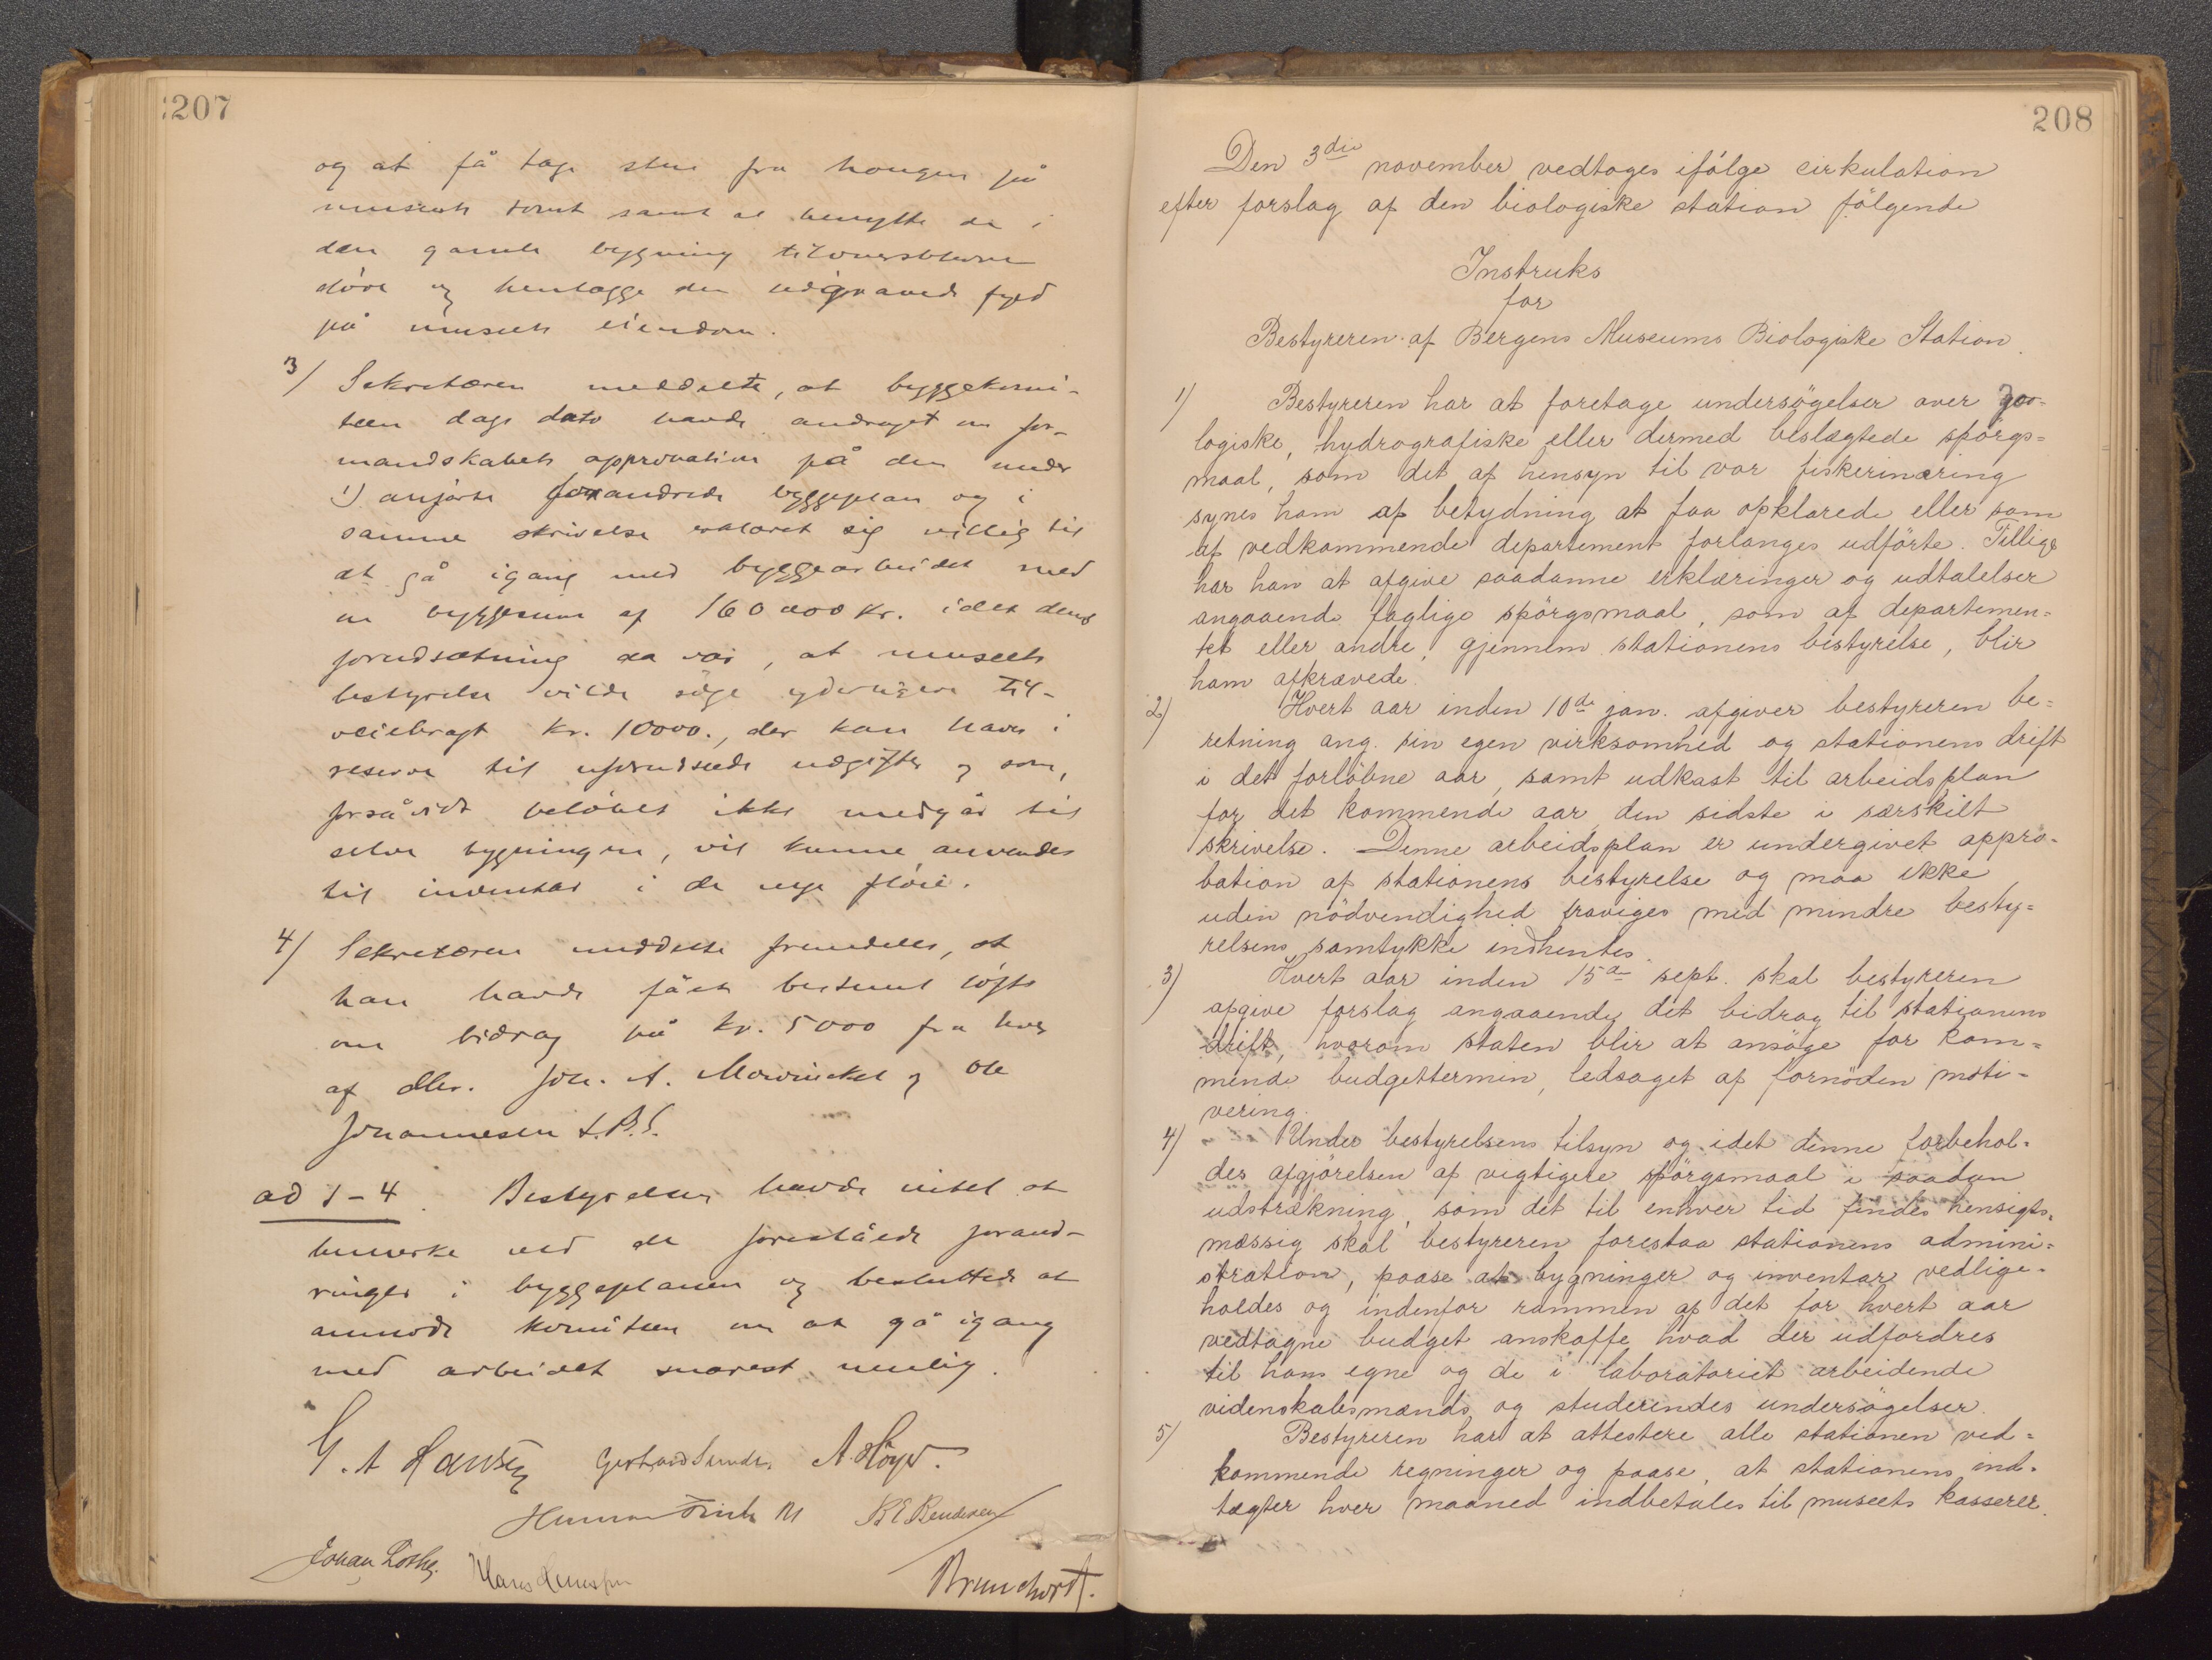 207
og at få tage sten fra haugen på
museets tomt samt at benytte de i
den gamle bygning tiloversblevne
döre og henlægge den udgravede fyld
på museets eiendom.
3) Sekretæren meddelte, at byggekomi-
teen dags dato havde andraget om for-
mandskabets approbation på den under
1) anförte forandrede byggeplan og i
samme skrivelse erklæret sig villig til
at gå igang med byggearbeidet med
en byggesum af 160000 kr. idet dens
forudsætning da var, at museets
bestyrelse vilde söge yderligere til-
veiebragt kr. 10000., der kan haves i
reserve til uforudseede udgifter og som,
forsåvidt belöbet ikke medgår til
selve bygningen, vil kunne anvendes
til inventar i de nye flöie.
4) Sekretæren meddelte fremdeles, at
han havde fået bestemt löfte
om bidrag på kr. 5000 fra hver
af dhrr. Joh. A. Mowinckel og Ole
Johannesen
ad 1-4. Bestyrelsen havde intet at
bemerke ved de foreståede forand-
ringer i byggeplanen og besluttede at
anmode komiteen om at gå igang
med arbeidet snarest mulig.
G. A Hansen A. Höyer.
Herman Friele
Johan Lothe. Brunchorst.
208
Den 3die november vedtoges ifölge cirkulation
efter forslag af den biologiske station fölgende
Instruks
for
Bestyreren af Bergens Museums Biologiske Station.
1) Bestyreren har at foretage undersögelser over zoo-
logiske, hydrografiske eller dermed beslægtede spörgs=
maal, som det af hensyn til vor fiskerinæring
synes ham af betydning at faa opklarede eller som
af vedkommende departement forlanges udförte. Tillige
har han at afgive saadanne erklæringer og udtalelser
angaaende faglige spörgsmaal, som af departemen=
tet eller andre, gjennem stationens bestyrelse, blir
ham afkrævede.
2) Hvert aar inden 10de jan. afgiver bestyreren be=
retning ang. sin egen virksomhed og stationens drift
i det forlöbne aar, samt udkast til arbeidsplan
for det kommende aar den sidste i særskilt
skrivelse. Denne arbeidsplan er undergivet appro-
bation af stationens bestyrelse og maa ikke
uden nödvendighed fraviges med mindre besty=
relsens samtykke indhentes.
3) Hvert aar inden 15de sept. skal bestyreren
afgive forslag angaaende det bidrag til stationens
drift, hvorom staten blir at ansöge for kom=
mende budgettermin, ledsaget af fornöden moti=
vering.
4) Under bestyrelsens tilsyn og idet denne forbehol-
des afgjörelsen af vigtigere spörgsmaal i saadan
udstrækning, som det til enhver tid findes hensigts=
mæssig skal bestyreren forestaa stationens admini=
stration, paase at bygninger og inventar vedlige-
holdes og indenfor rammen af det for hvert aar
vedtagne budget anskaffe hvad der udfordres
til hans egne og de i laboratoriet arbeidende
videnskabsmænds og studerendes undersögelser.
5) Bestyreren har at attestere alle stationen ved=
kommende regninger og paase, at stationens ind-
tægter hver maaned indbetales til museets kasserer.